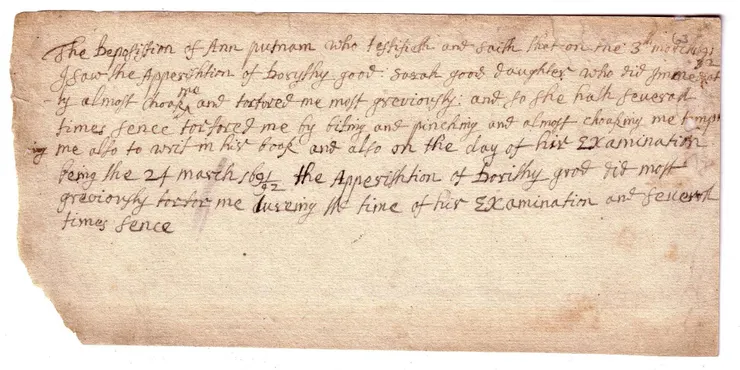 The Deposistion of Ann putnam who testifieth and saith that on the 3th march 91/92
I saw the Apperishtion of Dorithy good: sarah good daughter who did Immediat
ly almost choak me and tortored me most greviously: and so she hath severall
times sence tortored me by biting and pinching and almost choaking me tempt
ing me also to writ in hir book and also on the day of hir Examination
being the 24 march 1691/92 the Apperishtion of Dorithy good did most
greviously tortor me dureing the time of hir Examination and severall
times sence